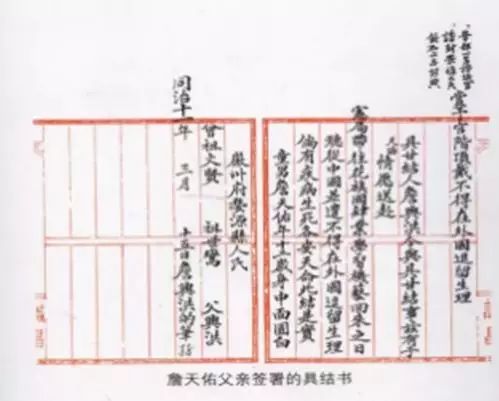 官階頂戴不得在外國逗留生理
具甘結人詹興洪今與具甘結事兹有子
天佑情愿送赴
憲局帶往花旗國肄業學習機藝回來之日
聽從中國差遣不得在外國逗留生理
倘有疾病生死各安天命此結是實
童男詹天佑年十二歲身中面圓白
徽州府婺源縣人氏
曾祖文賢 祖世鸞 父興洪
同治十一年 三月 十五日詹興洪
詹天佑父亲签署的具结书